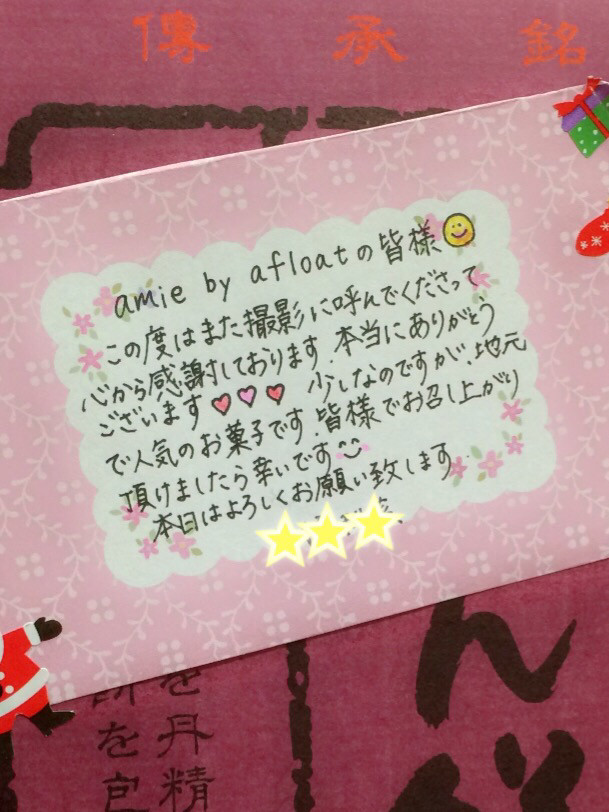 傳承銘
amie by afloatの皆様
この度はまた撮影に呼んでくださって
心から感謝しております。本当にありがとう
ございます♡♡♡ 少しなのですが、地元
で人気のお菓子です。皆様でお召し上がり
頂けましたら幸いです
本日はよろしくお願い致します。
ん
を丹精
を包